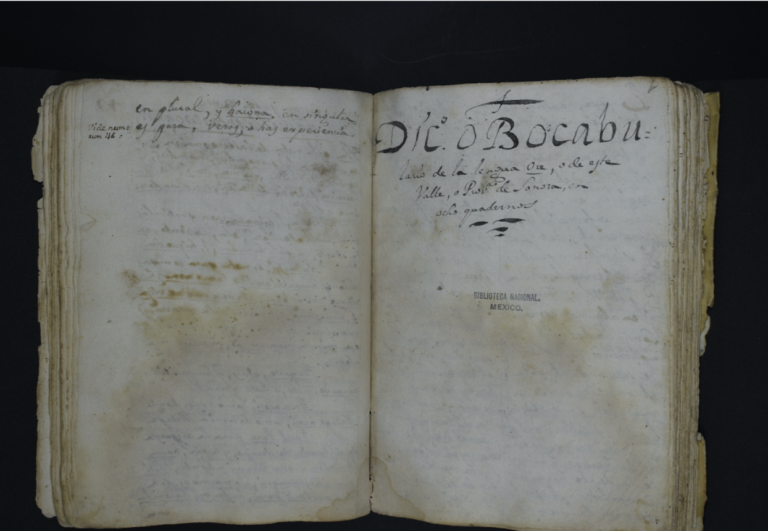 en plural, y
en singular
es para, veros, o has experiencia
Vide num.
Dic.º ò Bocabu=
lario de la lengua Ore, o de este
Valle, o Prov.ª de Sonora, en
ocho quadernos
BIBLIOTECA NACIONAL.
MEXICO.